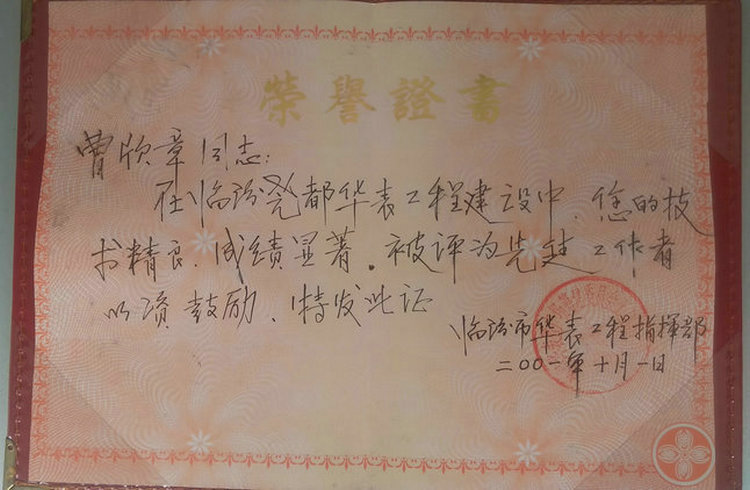 榮譽證書
曹欣章同志:
在临汾尧都华表工程建设中、您的技
术精良、成绩显著。被评为先进工作者
以资鼓励、特发此证
临汾市华表工程指挥部
二〇〇一年十月一日